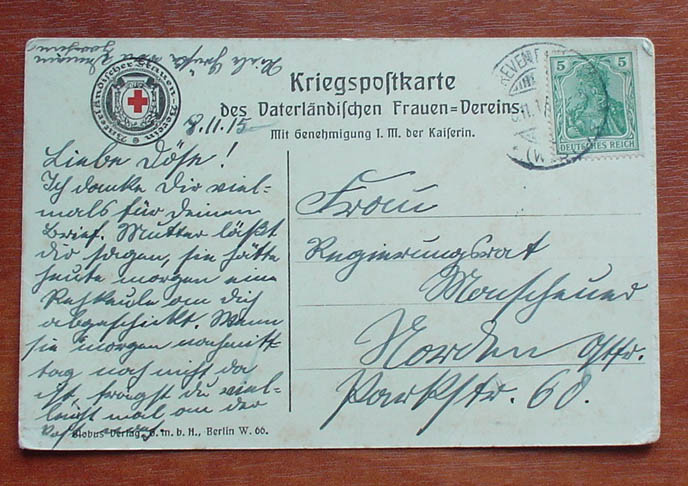 Viele Grüße von
Kriegspostkarte
des Vaterländischen Frauen=Vereins.
Mit Genehmigung I. M. der Kaiserin.
Vaterländischer Frauen-Verein
5 5
DEUTSCHES REICH
8.11.15
Liebe Döse!
Ich danke Dir viel-
mals für Deinen
Brief. Mutter läßt
dir sagen, sie hätte
heute morgen eine
Rehkeule an dich
abgeschickt. Wenn
sie morgen nachmit-
tag noch nicht da
ist, frägst du viel-
leicht mal an der
Post nach.
Frau
Regierungsrat
Monscheuer
Norden Ostfr.
Parkstr. 60.
Globus-Verlag G. m. b. H., Berlin W. 66.